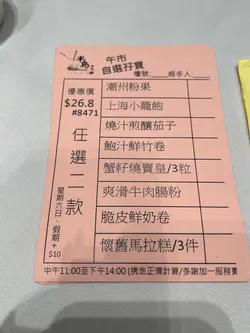 午市
自選孖寶
檯號:____經手人:____
優惠價
$26.8
#8471
任選二款
星期六日、假期+$10
潮州粉果
上海小龍飽
燒汁煎釀茄子
鮑汁鮮竹卷
蟹籽燒賣皇/3粒
爽滑牛肉腸粉
脆皮鮮奶卷
懷舊馬拉糕/3件
中午11:00至下午14:00 (携走正價計算/多謝加一服務費